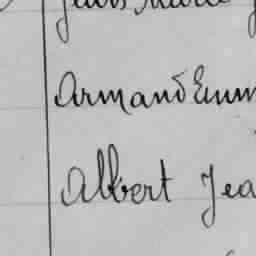 Armand Emm
Albert Jea